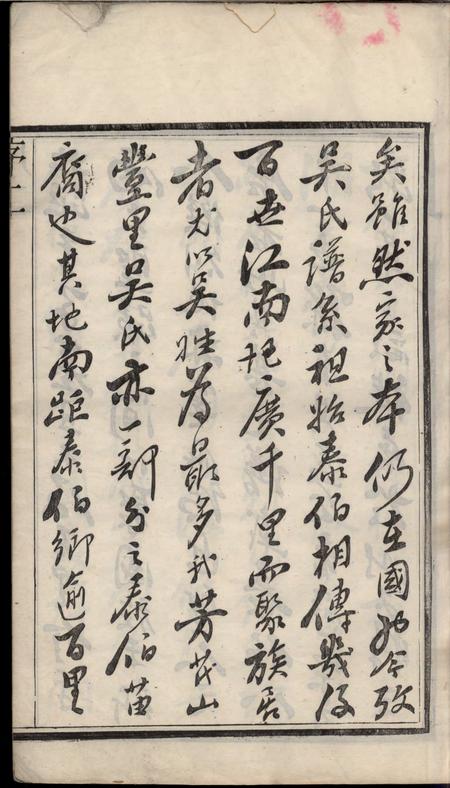 矣雖然家之本仍在國也今攷
吳氏譜系祖始泰伯相傳幾及
百世江南地廣千里而聚族居
者尤以吳姓為最多我芳茂山
豐里吳氏亦一部分之泰伯苗
裔也其地南距泰伯鄉逾百里